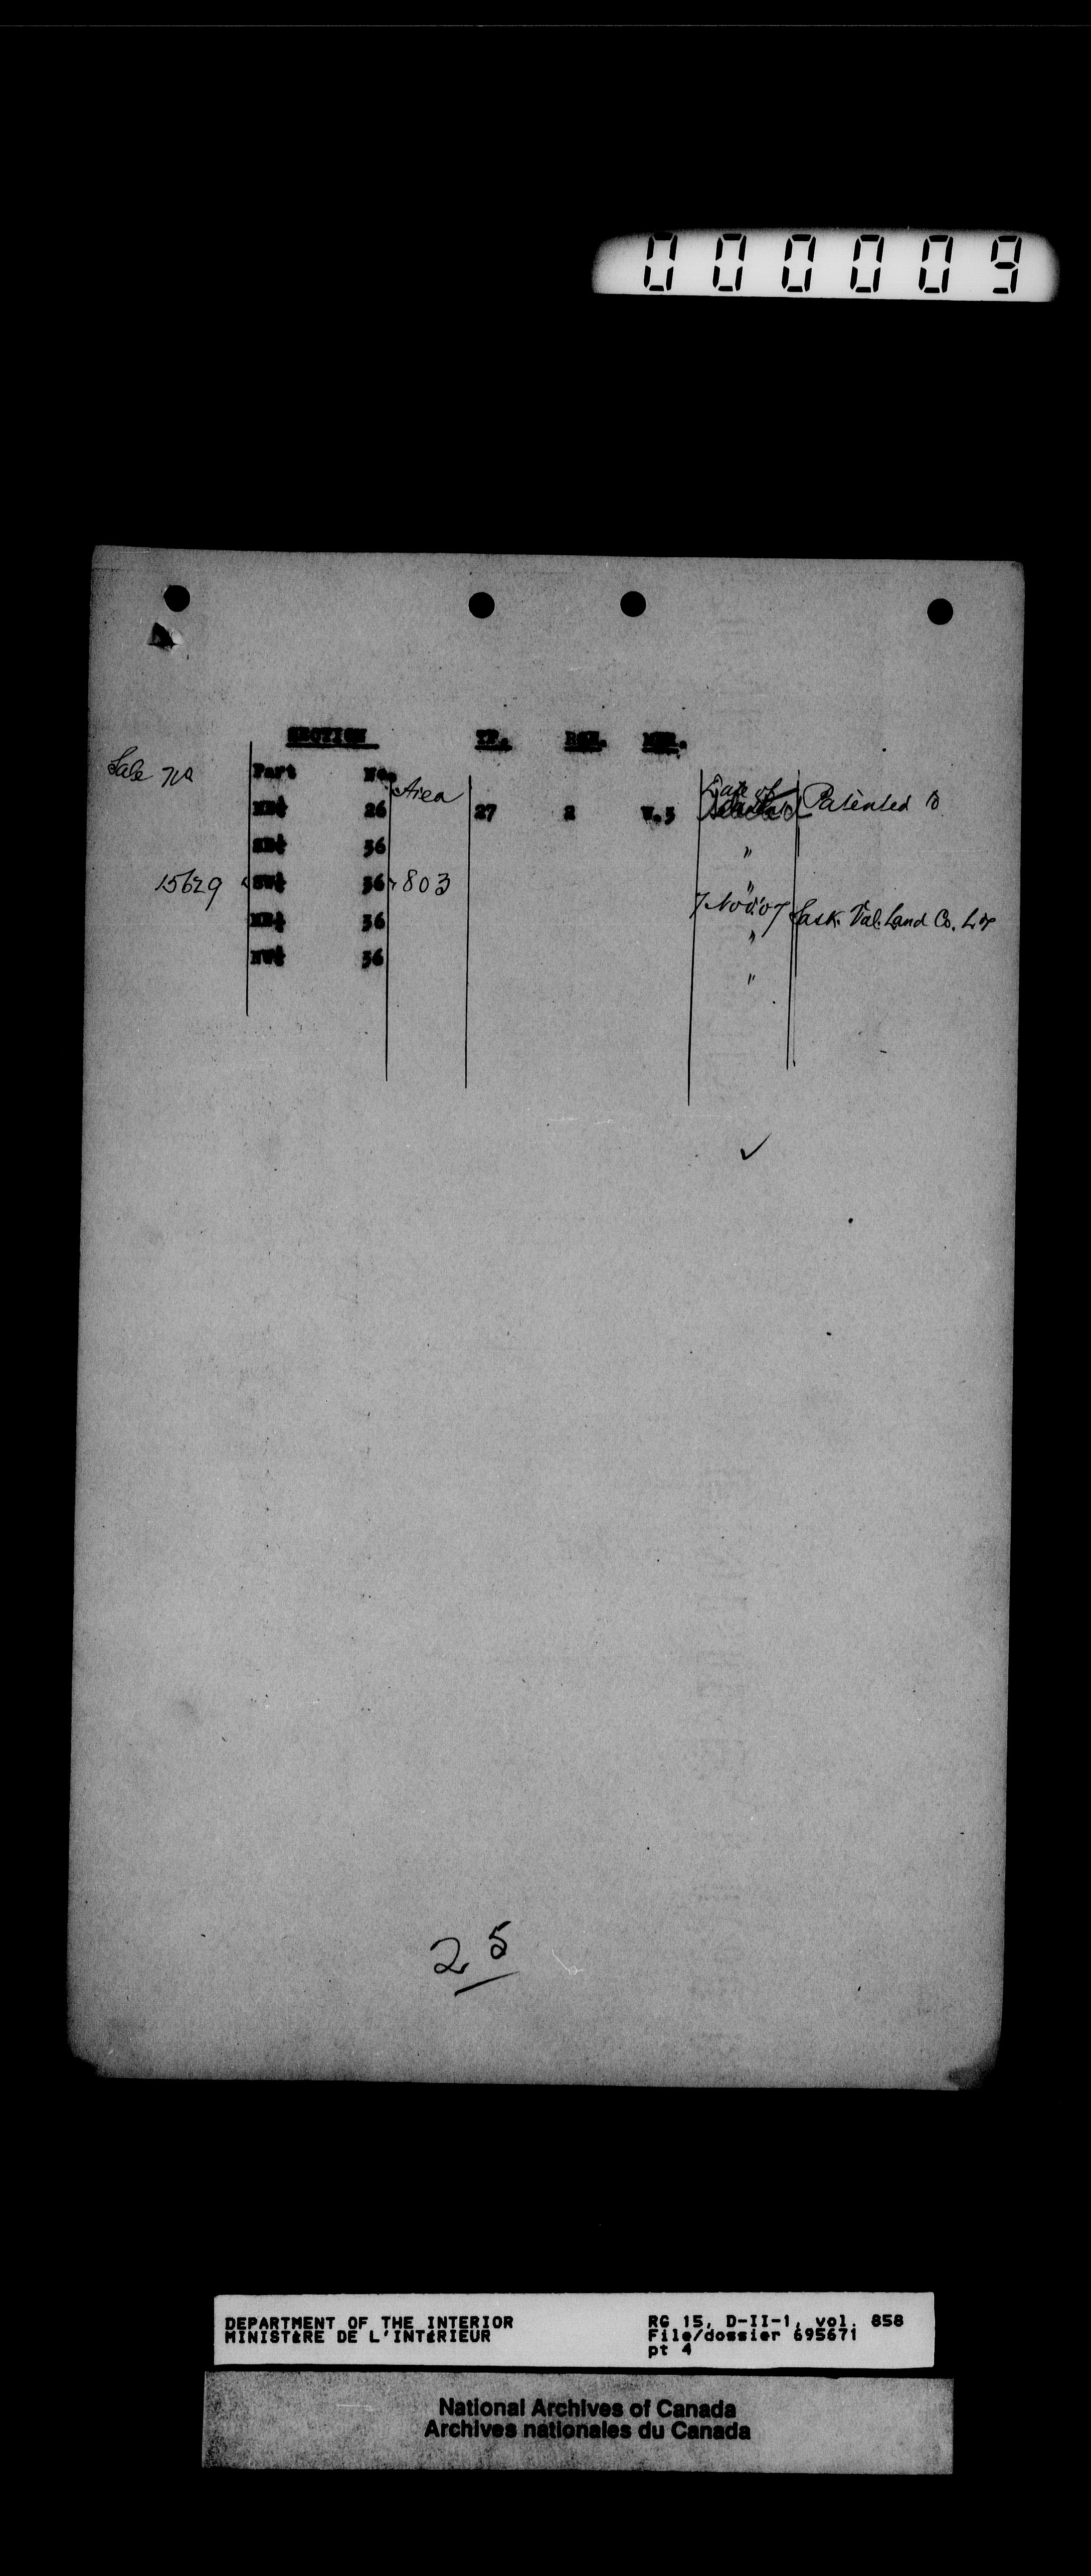 000009
SECTION TP. RGE. MER.
Sale No Part No. Area Date of Patented to
NE¼ 26 27 2 W.3
SE¼ 36 "
15629 SW¼ 36 803 "
NE¼ 36 7 Nov. 07 Sask. Val. Land Co. Ltd
NW¼ 36 "
"
✓
25
DEPARTMENT OF THE INTERIOR RG 15, D-II-1, vol. 858
MINISTÈRE DE L'INTÉRIEUR File/dossier 695671
pt 4
National Archives of Canada
Archives nationales du Canada